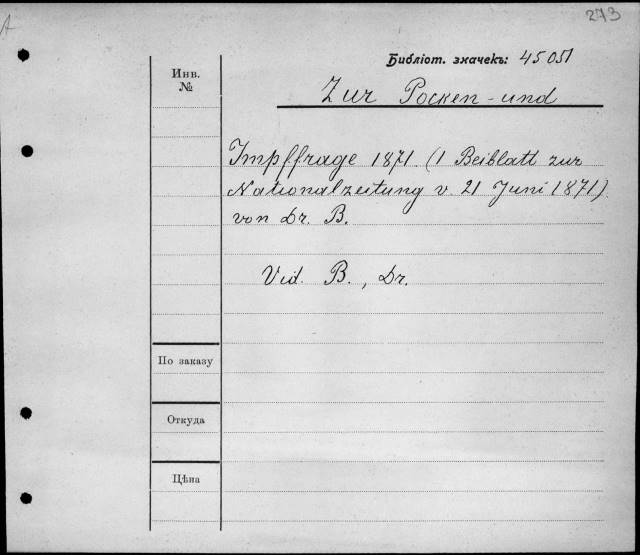 273
Библіот. значекъ: 45051
Инв.
№
Zur Pocken-und
Impffrage 1871. (1 Beiblatt zur
Nationalzeitung v. 21 Juni 1871)
von Dr. B.
Vid. B., Dr.
По заказу
Откуда
Цѣна